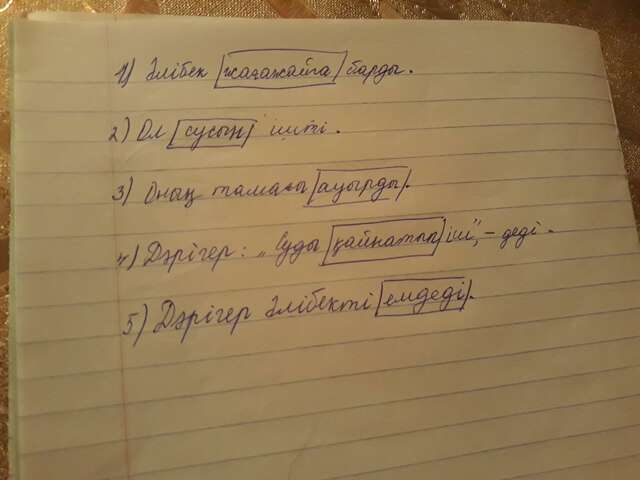 1) Әлібек жағажайға барды.
2) Ол сусын ішті.
3) Оның тамағы ауырды.
4) Дәрігер: „Суды қайнатып іш", – деді.
5) Дәрігер Әлібекті емдеді.